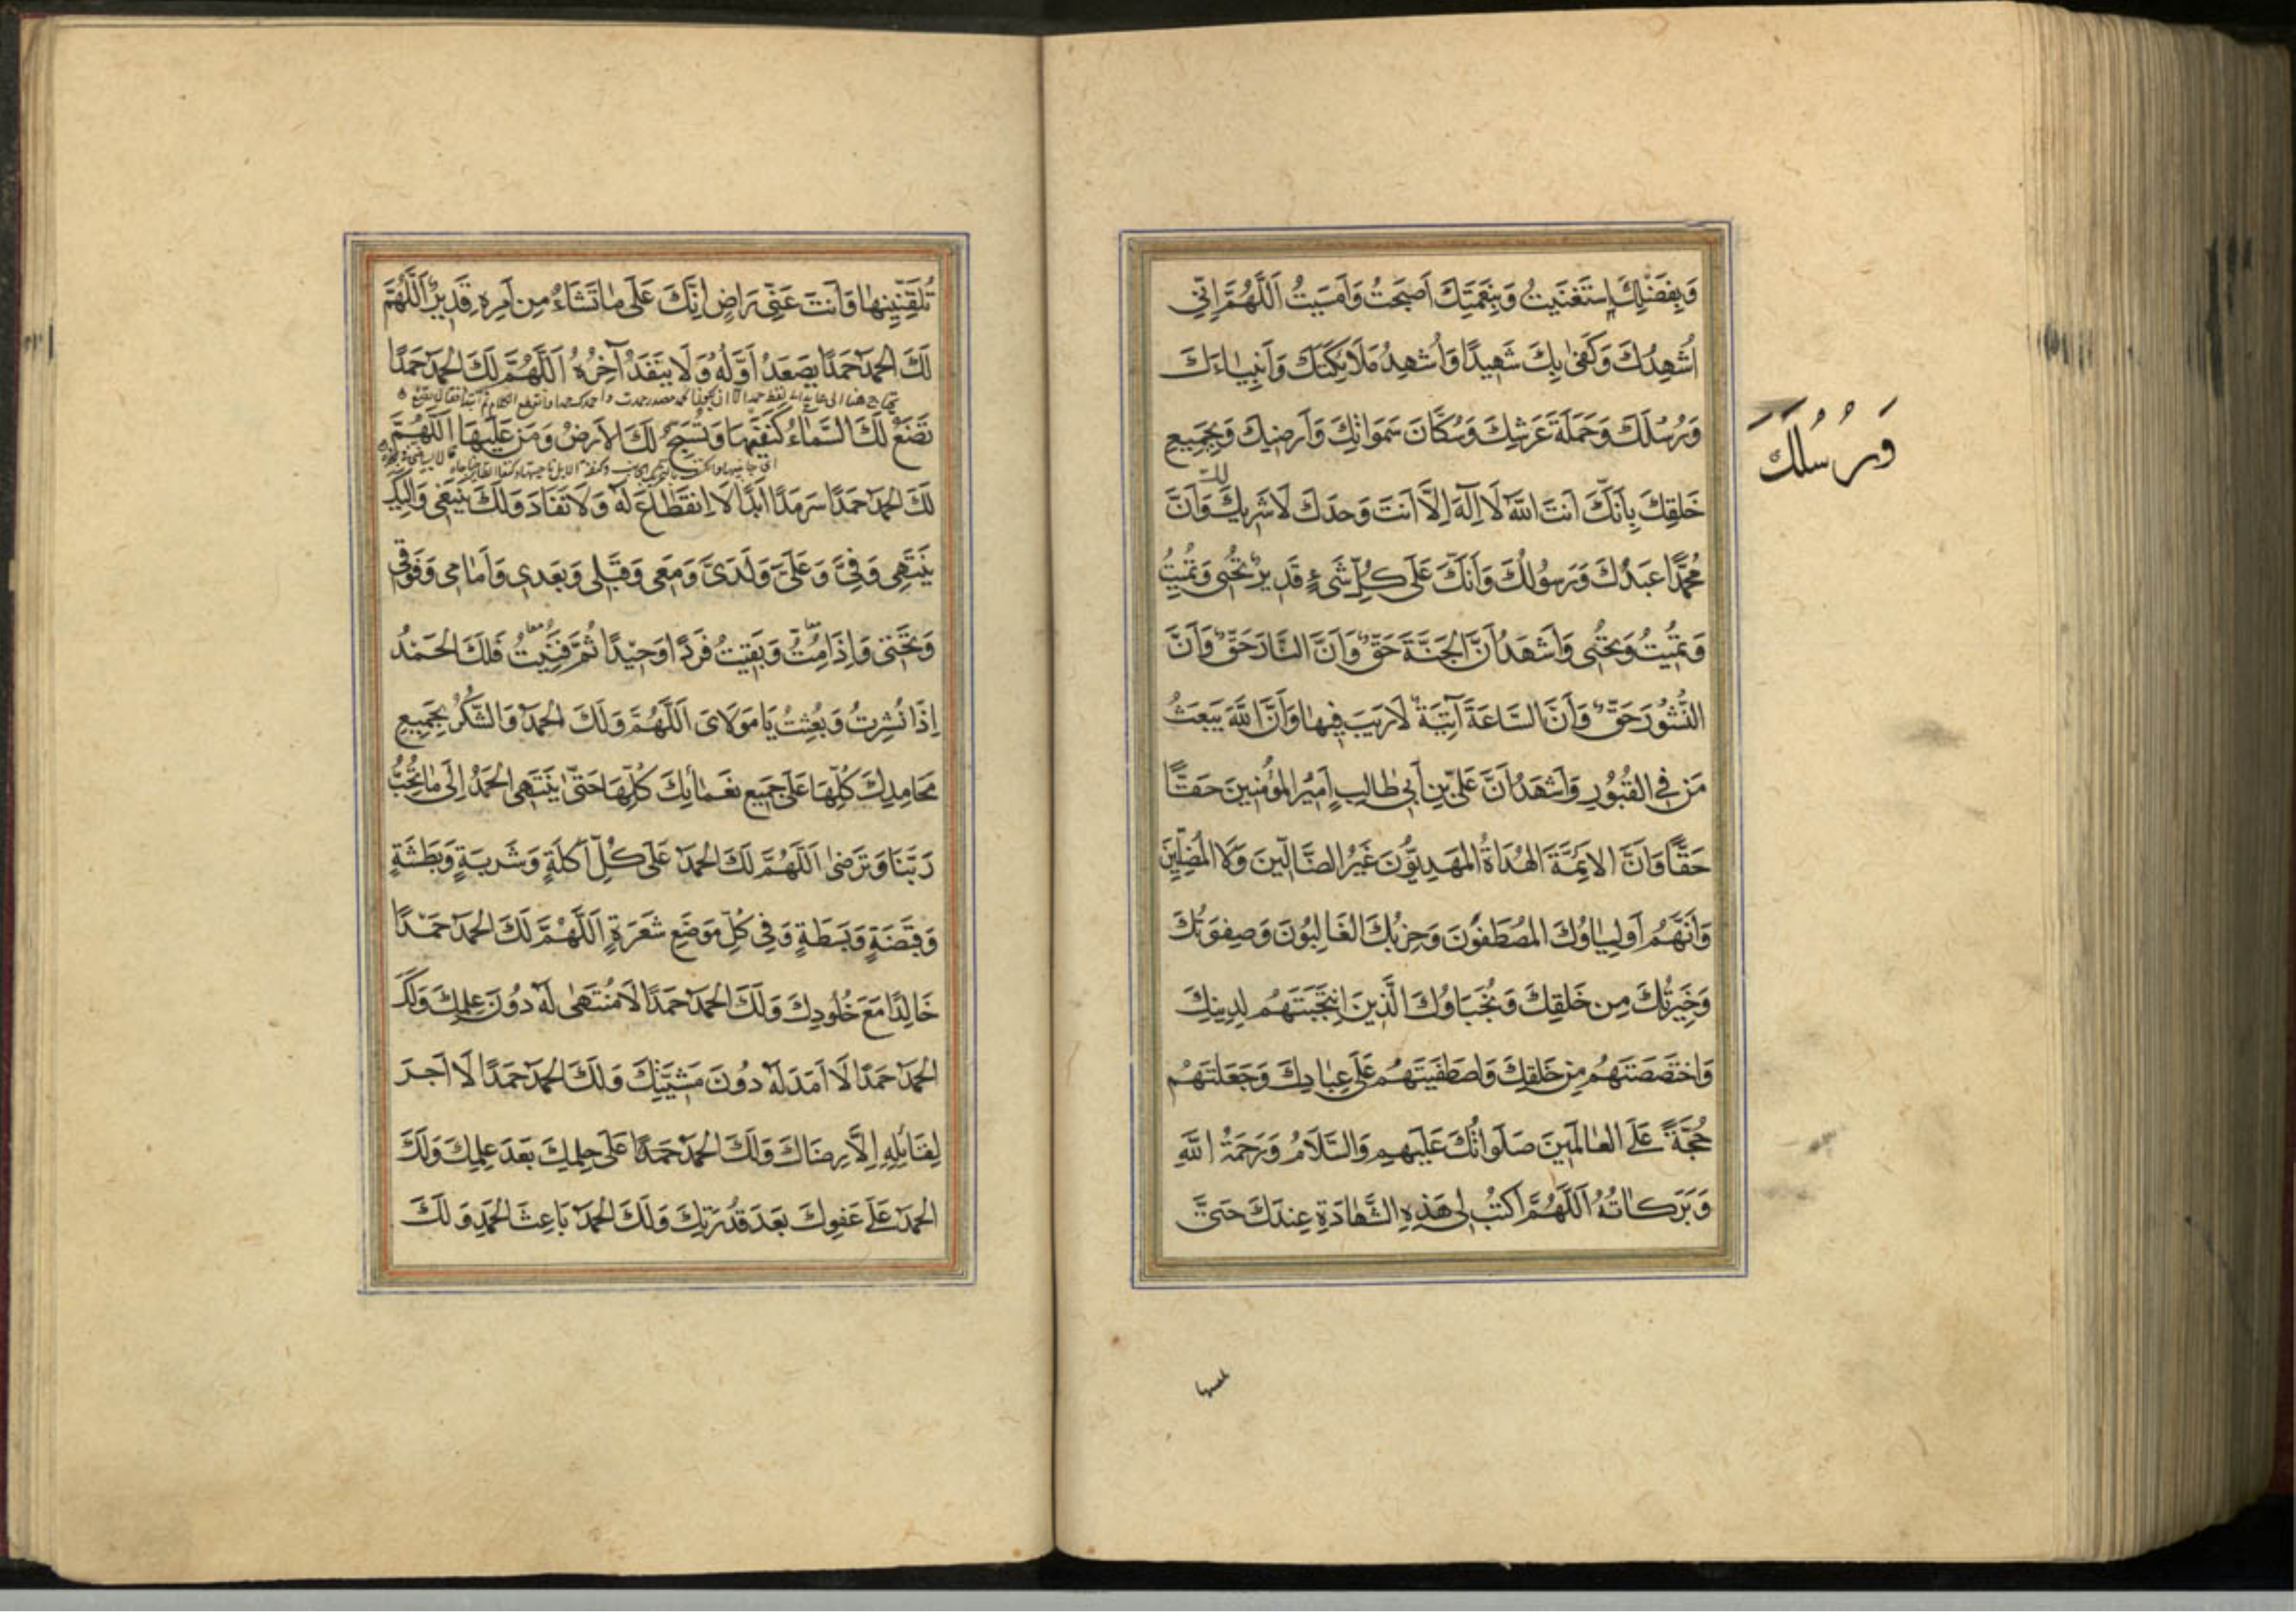 وَبِفَضْلِكَ اِسْتَغْنَيْتُ وَبِنِعْمَتِكَ اَصْبَحْتُ وَاَمْسَيْتُ اَللّٰهُمَّ اِنّي
اُشْهِدُكَ وَكَفىٰ بِكَ شَهيدًا وَاُشْهِدُ مَلَائِكَتَكَ وَاَنْبِيٰاءَكَ
وَرُسُلَكَ وَحَمَلَةَ عَرْشِكَ وَسُكَّانَ سَمٰوَاتِكَ وَاَرَضيكَ وَجَميعِ
وَرُسُلَكَ
خَلْقِكَ بِاَنَّكَ اَنْتَ اللّٰهُ لَا اِلٰهَ اِلَّا اَنْتَ وَحْدَكَ لَا شَريكَ لَكَ وَاَنَّ
مُحَمَّدًا عَبْدُكَ وَرَسُولُكَ وَاَنَّكَ عَلٰى كُلِّ شَيْءٍ قَديرٌ تُحْيي وَتُميتُ
وَتُميتُ وَتُحْيي وَاَشْهَدُ اَنَّ الْجَنَّةَ حَقٌّ وَاَنَّ النَّارَ حَقٌّ وَاَنَّ
النُّشُورَ حَقٌّ وَاَنَّ السَّاعَةَ آتِيَةٌ لَارَيْبَ فيهٰا وَاَنَّ اللّٰهَ يَبْعَثُ
مَنْ فِي الْقُبُورِ وَاَشْهَدُ اَنَّ عَلِيَّ بْنَ اَبي طٰالِبٍ اَميرُ الْمُؤْمِنينَ حَقًّا
حَقًّا وَاَنَّ الْاَئِمَّةَ الْهُدَاةُ الْمَهْدِيُّونَ غَيْرُ الضَّالّينَ وَلَا الْمُضِلّينَ
وَاَنَّهُمْ اَوْلِيٰاؤُكَ الْمُصْطَفَوْنَ وَحِزْبُكَ الْغَالِبُونَ وَصِفْوَتُكَ
وَخِيَرَتُكَ مِنْ خَلْقِكَ وَنُجَبَاؤُكَ الَّذينَ انْتَجَبْتَهُمْ لِدينِكَ
وَاخْتَصَصْتَهُمْ مِنْ خَلْقِكَ وَاصْطَفَيْتَهُمْ عَلٰى عِبٰادِكَ وَجَعَلْتَهُمْ
حُجَّةً عَلَى الْعٰالَمينَ صَلَوَاتُكَ عَلَيْهِمْ وَالسَّلَامُ وَرَحْمَةُ اللّٰهِ
وَبَرَكَاتُهُ اَللّٰهُمَّ اكْتُبْ لي هٰذِهِ الشَّهٰادَةِ عِنْدَكَ حَتّىٰ
تُلَقِّنَنيهٰا وَاَنْتَ عَنّي رَاضٍ اِنَّكَ عَلٰى مٰا تَشَاءُ مِنْ اَمْرِهِ قَديرٌ اَللّٰهُمَّ
لَكَ الْحَمْدُ حَمْدًا يَصْعَدُ اَوَّلُهُ وَلَا يَنْفَدُ آخِرُهُ اَللّٰهُمَّ لَكَ الْحَمْدُ حَمْدًا
تَضَعُ لَكَ السَّمٰاءُ كَنَفَيْهٰا وَتُسَبِّحُ لَكَ الْاَرْضُ وَمَنْ عَلَيْهَا اَللّٰهُمَّ
لَكَ الْحَمْدُ حَمْدًا سَرْمَدًا اَبَدًا لَا اِنْقِطَاعَ لَهُ وَلَا نَفَادَ وَلَكَ يَنْبَغي وَاِلَيْكَ
يَنْتَهي وَفِيَّ وَعَلَيَّ وَلَدَيَّ وَمَعي وَقَبْلي وَبَعْدي وَاَمٰامي وَفَوْقي
وَتَحْتي وَاِذَا مِتُّ وَبَقيتُ فَرْدًا وَحيدًا ثُمَّ فَنيتُ فَلَكَ الْحَمْدُ
اِذَا نُشِرْتُ وَبُعِثْتُ يَا مَوْلَايَ اَللّٰهُمَّ وَلَكَ الْحَمْدُ وَالشُّكْرُ بِجَميعِ
مَحَامِدِكَ كُلِّهَا عَلٰى جَميعِ نَعْمٰائِكَ كُلِّهَا حَتّىٰ يَنْتَهِيَ الْحَمْدُ اِلٰى مٰا تُحِبُّ
رَبَّنَا وَتَرْضىٰ اَللّٰهُمَّ لَكَ الْحَمْدُ عَلٰى كُلِّ اَكْلَةٍ وَشَرْبَةٍ وَبَطْشَةٍ
وَقَبْضَةٍ وَبَسْطَةٍ وَفي كُلِّ مَوْضِعِ شَعْرَةٍ اَللّٰهُمَّ لَكَ الْحَمْدُ حَمْدًا
خَالِدًا مَعَ خُلُودِكَ وَلَكَ الْحَمْدُ حَمْدًا لَا مُنْتَهىٰ لَهُ دُونَ عِلْمِكَ وَلَكَ
الْحَمْدُ حَمْدًا لَا اَمَدَ لَهُ دُونَ مَشِيَّتِكَ وَلَكَ الْحَمْدُ حَمْدًا لَا اَجْرَ
لِقَائِلِهِ اِلَّا رِضَاكَ وَلَكَ الْحَمْدُ حَمْدًا عَلٰى حِلْمِكَ بَعْدَ عِلْمِكَ وَلَكَ
الْحَمْدُ عَلٰى عَفْوِكَ بَعْدَ قُدْرَتِكَ وَلَكَ الْحَمْدُ بَاعِثَ الْحَمْدِ وَلَكَ